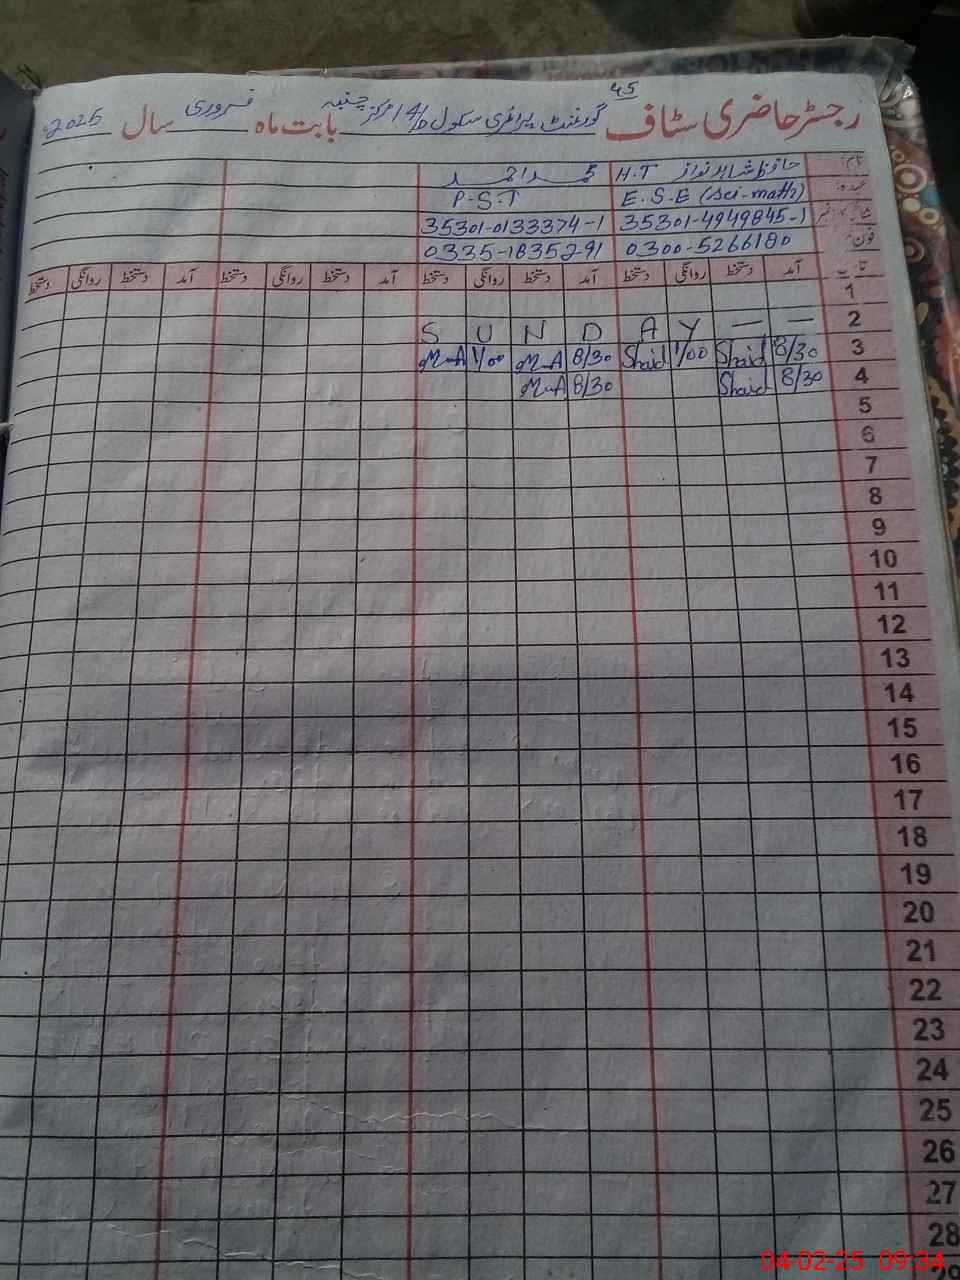 45
رجسٹر حاضری سٹاف گورنمنٹ پرائمری سکول 14/D مرکز بابت ماہ فروری سال 2025ء
نام: حافظ شاہد نواز H.T احمد
عہدہ: E.S.E (Sci-math) P.S.T
شناختی کارڈ نمبر 35301-4949845-1 35301-0133374-1
فون: 0300-5266180 0335-1835291
تاریخ آمد دستخط روانگی دستخط آمد دستخط روانگی دستخط آمد دستخط روانگی دستخط آمد دستخط روانگی دستخط
1
2 S U N D A Y — —
3 8/30 Shaid 1/00 Shaid 8/30 M-A 1/00 M-A
4 8/30 Shaid 8/30 M-A
5
6
7
8
9
10
11
12
13
14
15
16
17
18
19
20
21
22
23
24
25
26
27
28
29
04-02-25 09:34